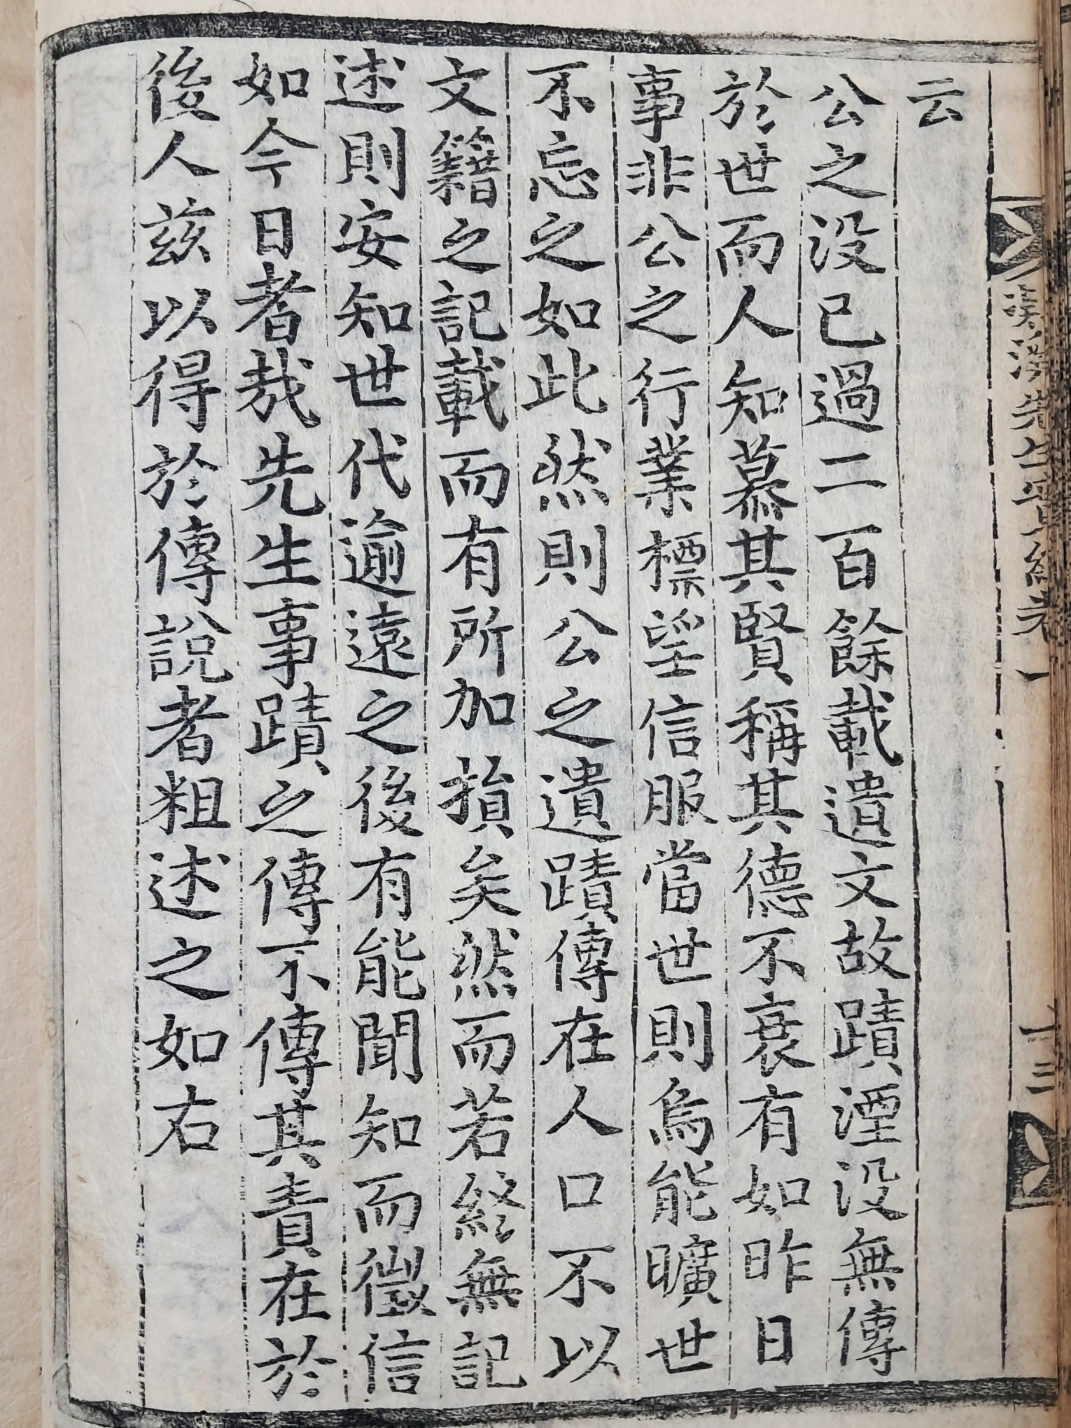 云
公之没已過二百餘載遺文故蹟湮没無傳
於世而人知慕其賢稱其德不衰有如昨日
事非公之行業標望信服當世則烏能曠世
不忘之如此然則公之遺蹟傳在人口不以
文籍之記載而有所加損矣然而若終無記
述則安知世代逾遠之後有能聞知而徵信
如今日者哉先生事蹟之傳不傳其責在於
後人玆以得於傳說者粗述之如右
先生實紀卷一
十三